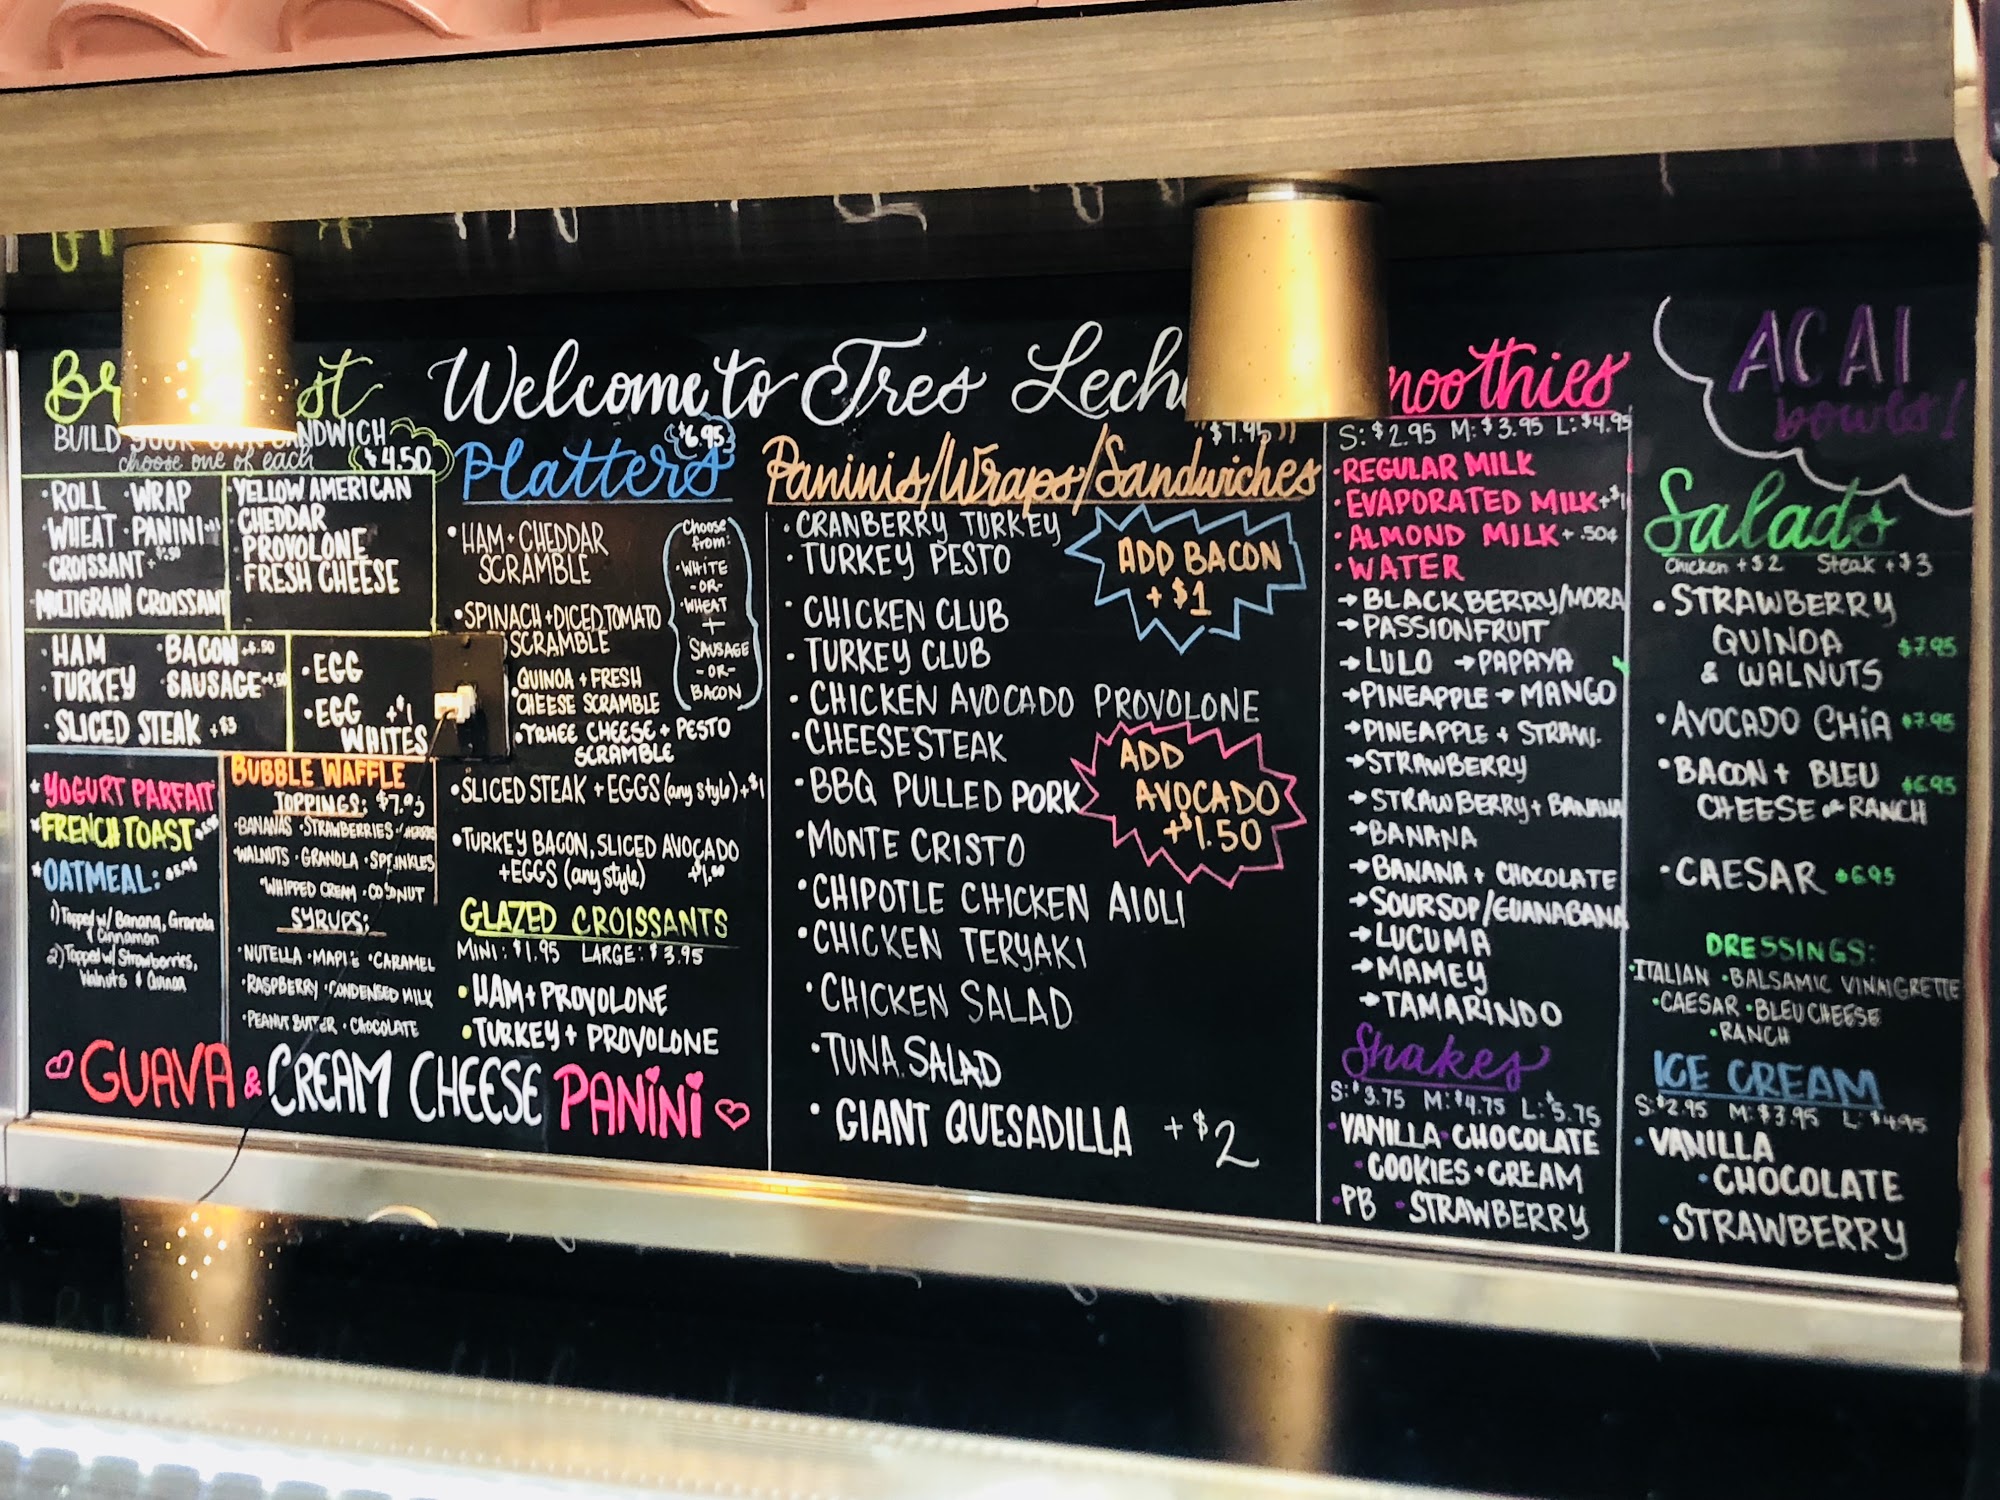 Welcome to Tres
BUILD YOUR OWN SANDWICH
choose one of each
$4.50
• ROLL • WRAP
• WHEAT • PANINI
• CROISSANT
• MULTIGRAIN CROISSANT
• YELLOW AMERICAN
• CHEDDAR
• PROVOLONE
• FRESH CHEESE
• HAM • BACON
• TURKEY • SAUSAGE
• SLICED STEAK +$3
• EGG
• EGG +$1
WHITES
* YOGURT PARFAIT
* FRENCH TOAST
* OATMEAL:
1) Topped w/ Banana, Granola
& Cinnamon
2) Topped w/ Strawberries,
Walnuts & Quinoa
BUBBLE WAFFLE
TOPPINGS: $7.95
• BANANAS • STRAWBERRIES
• WALNUTS • GRANOLA • SPRINKLES
• WHIPPED CREAM • COCONUT
SYRUPS:
• NUTELLA • MAPLE • CARAMEL
• RASPBERRY • CONDENSED MILK
• PEANUT BUTTER • CHOCOLATE
GUAVA & CREAM CHEESE PANINI
Platters
$6.95
• HAM + CHEDDAR
SCRAMBLE
• SPINACH + DICED TOMATO
SCRAMBLE
• QUINOA + FRESH
CHEESE SCRAMBLE
• TRHEE CHEESE + PESTO
SCRAMBLE
• SLICED STEAK + EGGS (any style) +$1
• TURKEY BACON, SLICED AVOCADO
+ EGGS (any style) +$1.00
Choose
from:
• WHITE
-OR-
• WHEAT
+
SAUSAGE
-OR-
BACON
GLAZED CROISSANTS
MINI: $1.95 LARGE: $3.95
• HAM + PROVOLONE
• TURKEY + PROVOLONE
"$7.95"
Paninis/Wraps/Sandwiches
• CRANBERRY TURKEY
• TURKEY PESTO
• CHICKEN CLUB
• TURKEY CLUB
• CHICKEN AVOCADO PROVOLONE
• CHEESESTEAK
• BBQ PULLED PORK
• MONTE CRISTO
• CHIPOTLE CHICKEN AIOLI
• CHICKEN TERYAKI
• CHICKEN SALAD
• TUNA SALAD
• GIANT QUESADILLA +$2
ADD BACON
+$1
ADD
AVOCADO
+$1.50
S: $2.95 M: $3.95 L: $4.95
• REGULAR MILK
• EVAPORATED MILK +$1
• ALMOND MILK + .50¢
• WATER
→ BLACKBERRY/MORA
→ PASSIONFRUIT
→ LULO → PAPAYA
→ PINEAPPLE → MANGO
→ PINEAPPLE + STRAW.
→ STRAWBERRY
→ STRAWBERRY + BANANA
→ BANANA
→ BANANA + CHOCOLATE
→ SOURSOP/GUANABANA
→ LUCUMA
→ MAMEY
→ TAMARINDO
Shakes
S: $3.75 M: $4.75 L: $5.75
• VANILLA • CHOCOLATE
• COOKIES + CREAM
• PB • STRAWBERRY
ACAI
bowls!
Salads
Chicken +$2 Steak +$3
• STRAWBERRY
QUINOA
& WALNUTS $7.95
• AVOCADO CHIA $7.95
• BACON + BLEU
CHEESE or RANCH $6.95
• CAESAR $6.95
DRESSINGS:
• ITALIAN • BALSAMIC VINAIGRETTE
• CAESAR • BLEU CHEESE
• RANCH
ICE CREAM
S: $2.95 M: $3.95 L: $4.95
• VANILLA
• CHOCOLATE
• STRAWBERRY